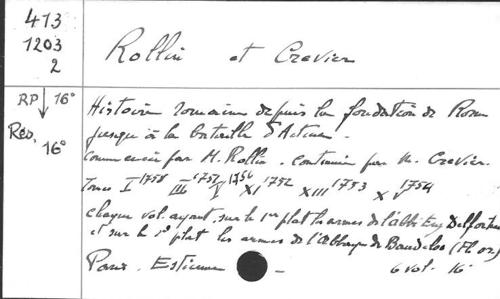 413
1203
2
Rollin et Crevier
RP 16°
Rés. 16°
Histoire romaine depuis la fondation de Rome
jusqu'à la bataille d'Actium.
Commencée par M. Rollin. Continuée par M. Crevier.
Tomes I 1758 III 1751 V 1756 XI 1752 XIII 1753 XV 1754
chaque vol. ayant sur le 1er plat les armes de l'abbé Eug Delfortrie
et sur le 2e plat les armes de l'Abbaye de Baudeloo (Fl. or.)
Paris. Estienne -
6 vol. 16°